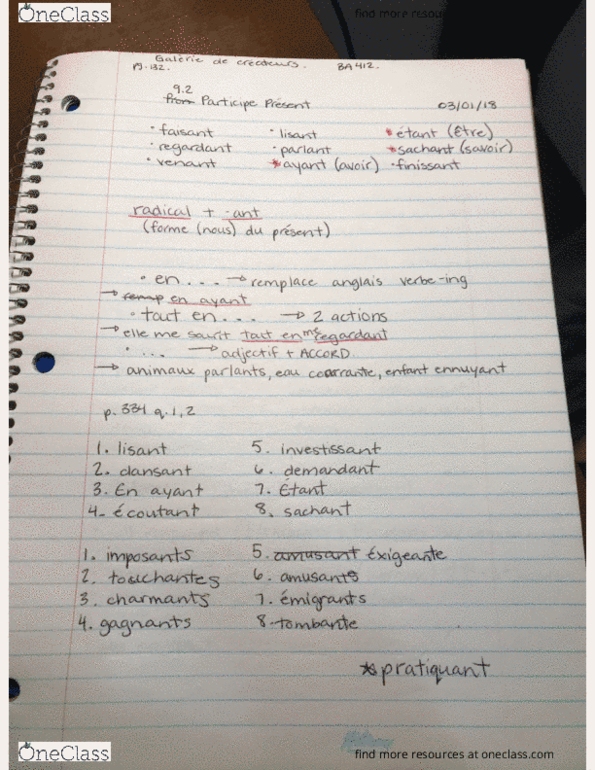 OneClass
find more resou
Galerie de créateurs. BA412.
pg. 132.
9.2
Prom Participe Présent 03/01/18
• faisant • lisant * étant (être)
• regardant • parlant * sachant (savoir)
• venant * ayant (avoir) • finissant
radical + -ant
(forme (nous) du présent)
• en... → remplace anglais verbe-ing
→ remp en ayant
• tout en... → 2 actions
→ elle me sourit tout en me regardant
• ... → adjectif + ACCORD
→ animaux parlants, eau courrante, enfant ennuyant
p. 334 q. 1, 2
1. lisant 5. investissant
2. dansant 6. demandant
3. En ayant 7. Étant
4- écoutant 8. sachant
1. imposants 5. amusant éxigeante
2. touchantes 6. amusants
3. charmants 7. émigrants
4. gagnants 8-tombante
*pratiquant
OneClass
find more resources at oneclass.com